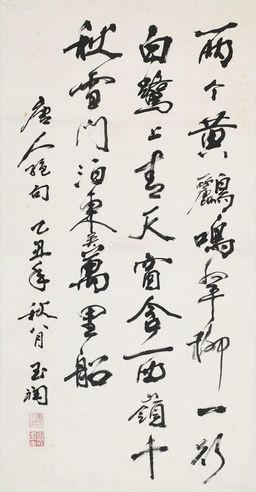 两个黄鸝鳴翠柳一行
白鷺上青天窗含西嶺千
秋雪門泊東吴萬里船
唐人絶句 乙丑年 秋八月 玉润